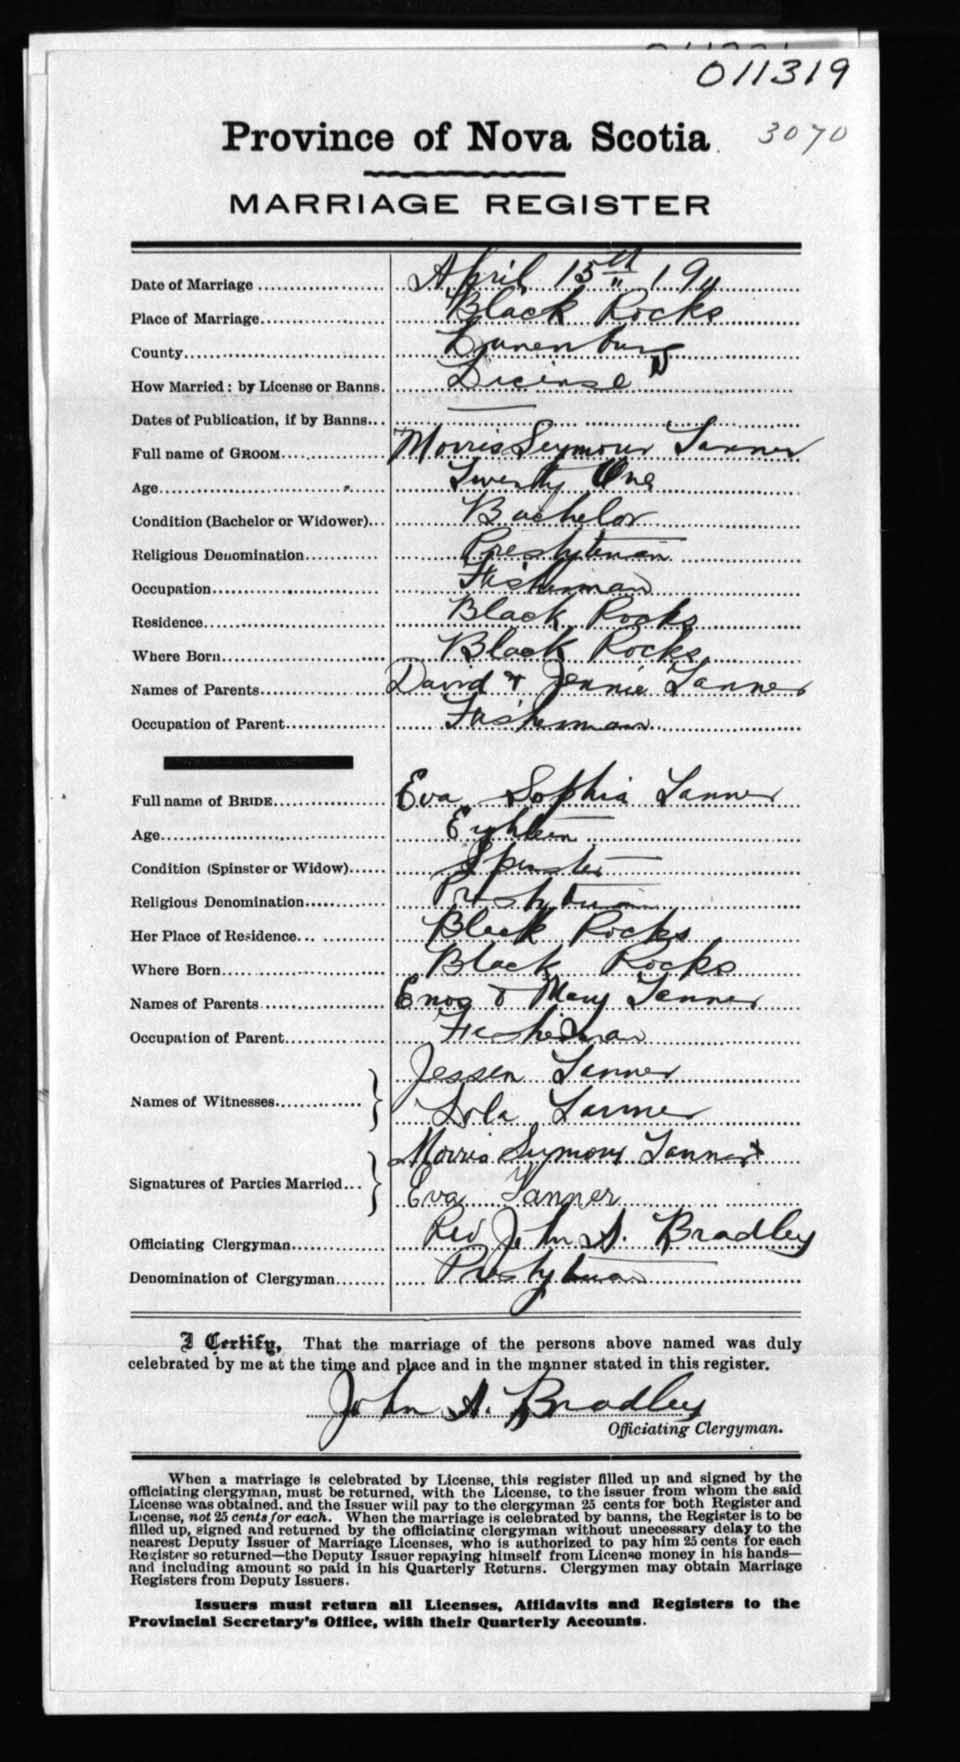 011319
Province of Nova Scotia
3070
MARRIAGE REGISTER
Date of Marriage April 15th 1911
Place of Marriage Black Rocks
County Lunenburg
How Married: by License or Banns. License
Dates of Publication, if by Banns
Full name of GROOM Morris Seymour Tanner
Age Twenty One
Condition (Bachelor or Widower) Bachelor
Religious Denomination Presbyterian
Occupation Fisherman
Residence Black Rocks
Where Born Black Rocks
Names of Parents David & Jennie Tanner
Occupation of Parent Fisherman
Full name of BRIDE Eva Sophia Tanner
Age Eighteen
Condition (Spinster or Widow) Spinster
Religious Denomination Presbyterian
Her Place of Residence Black Rocks
Where Born Black Rocks
Names of Parents Enog & Mary Tanner
Occupation of Parent Fisherman
Jessen Tanner
Names of Witnesses
Lola Tanner
Morris Seymour Tanner
Signatures of Parties Married
Eva Tanner
Officiating Clergyman Rev John A. Bradley
Denomination of Clergyman Presbyterian
I Certify, That the marriage of the persons above named was duly
celebrated by me at the time and place and in the manner stated in this register.
John A. Bradley
Officiating Clergyman.
When a marriage is celebrated by License, this register filled up and signed by the
officiating clergyman, must be returned, with the License, to the issuer from whom the said
License was obtained, and the Issuer will pay to the clergyman 25 cents for both Register and
License, not 25 cents for each. When the marriage is celebrated by banns, the Register is to be
filled up, signed and returned by the officiating clergyman without unecessary delay to the
nearest Deputy Issuer of Marriage Licenses, who is authorized to pay him 25 cents for each
Register so returned—the Deputy Issuer repaying himself from License money in his hands—
and including amount so paid in his Quarterly Returns. Clergymen may obtain Marriage
Registers from Deputy Issuers.
Issuers must return all Licenses, Affidavits and Registers to the
Provincial Secretary's Office, with their Quarterly Accounts.